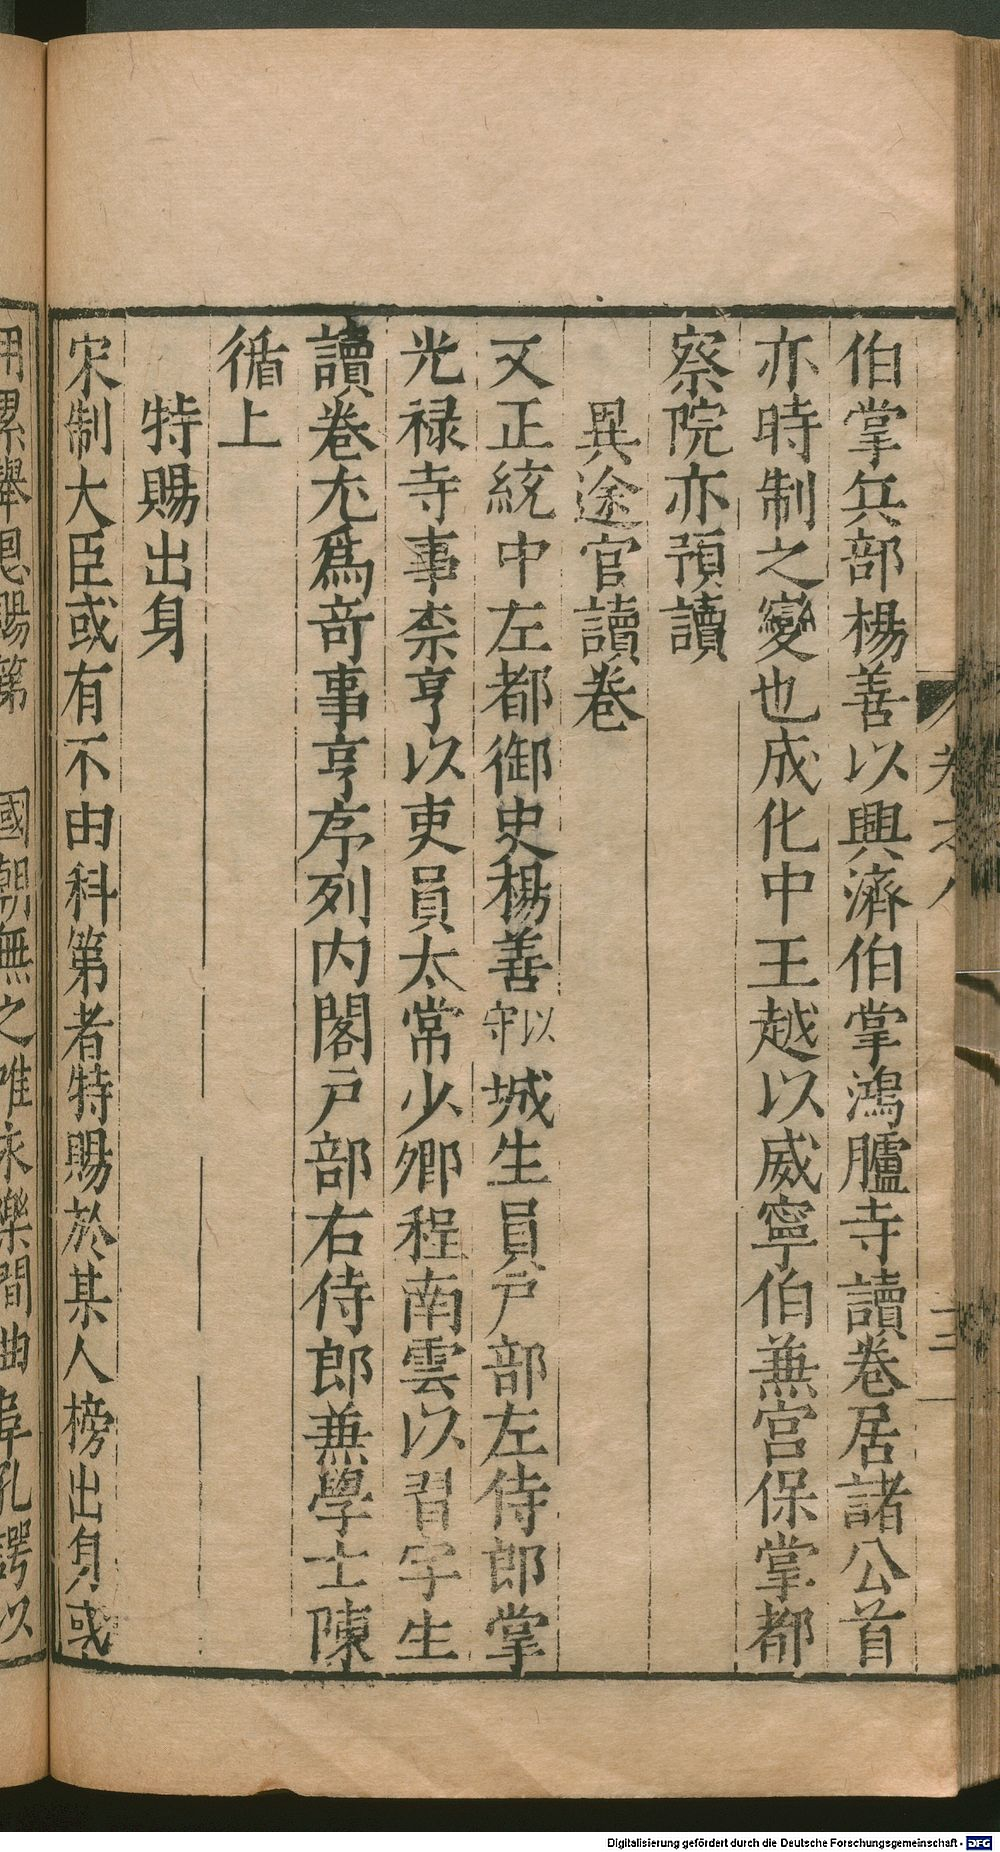 伯掌兵部楊善以興濟伯掌鴻臚寺讀卷居諸公首
亦時制之變也成化中王越以威寧伯兼宫保掌都
察院亦預讀
異途官讀卷
又正統中左都御史楊善以守城生員戸部左侍郎掌
光禄寺事柰亨以吏員太常少卿程南雲以習字生
讀卷尤爲竒事亨序列内閣戸部右侍郎兼學士陳
循上
特賜出身
宋制大臣或有不由科第者特賜於某人榜出身或
用累舉恩賜第 國朝無之唯永樂間曲阜孔諤以
卷之八
十三
Digitalisierung gefördert durch die Deutsche Forschungsgemeinschaft - DFG